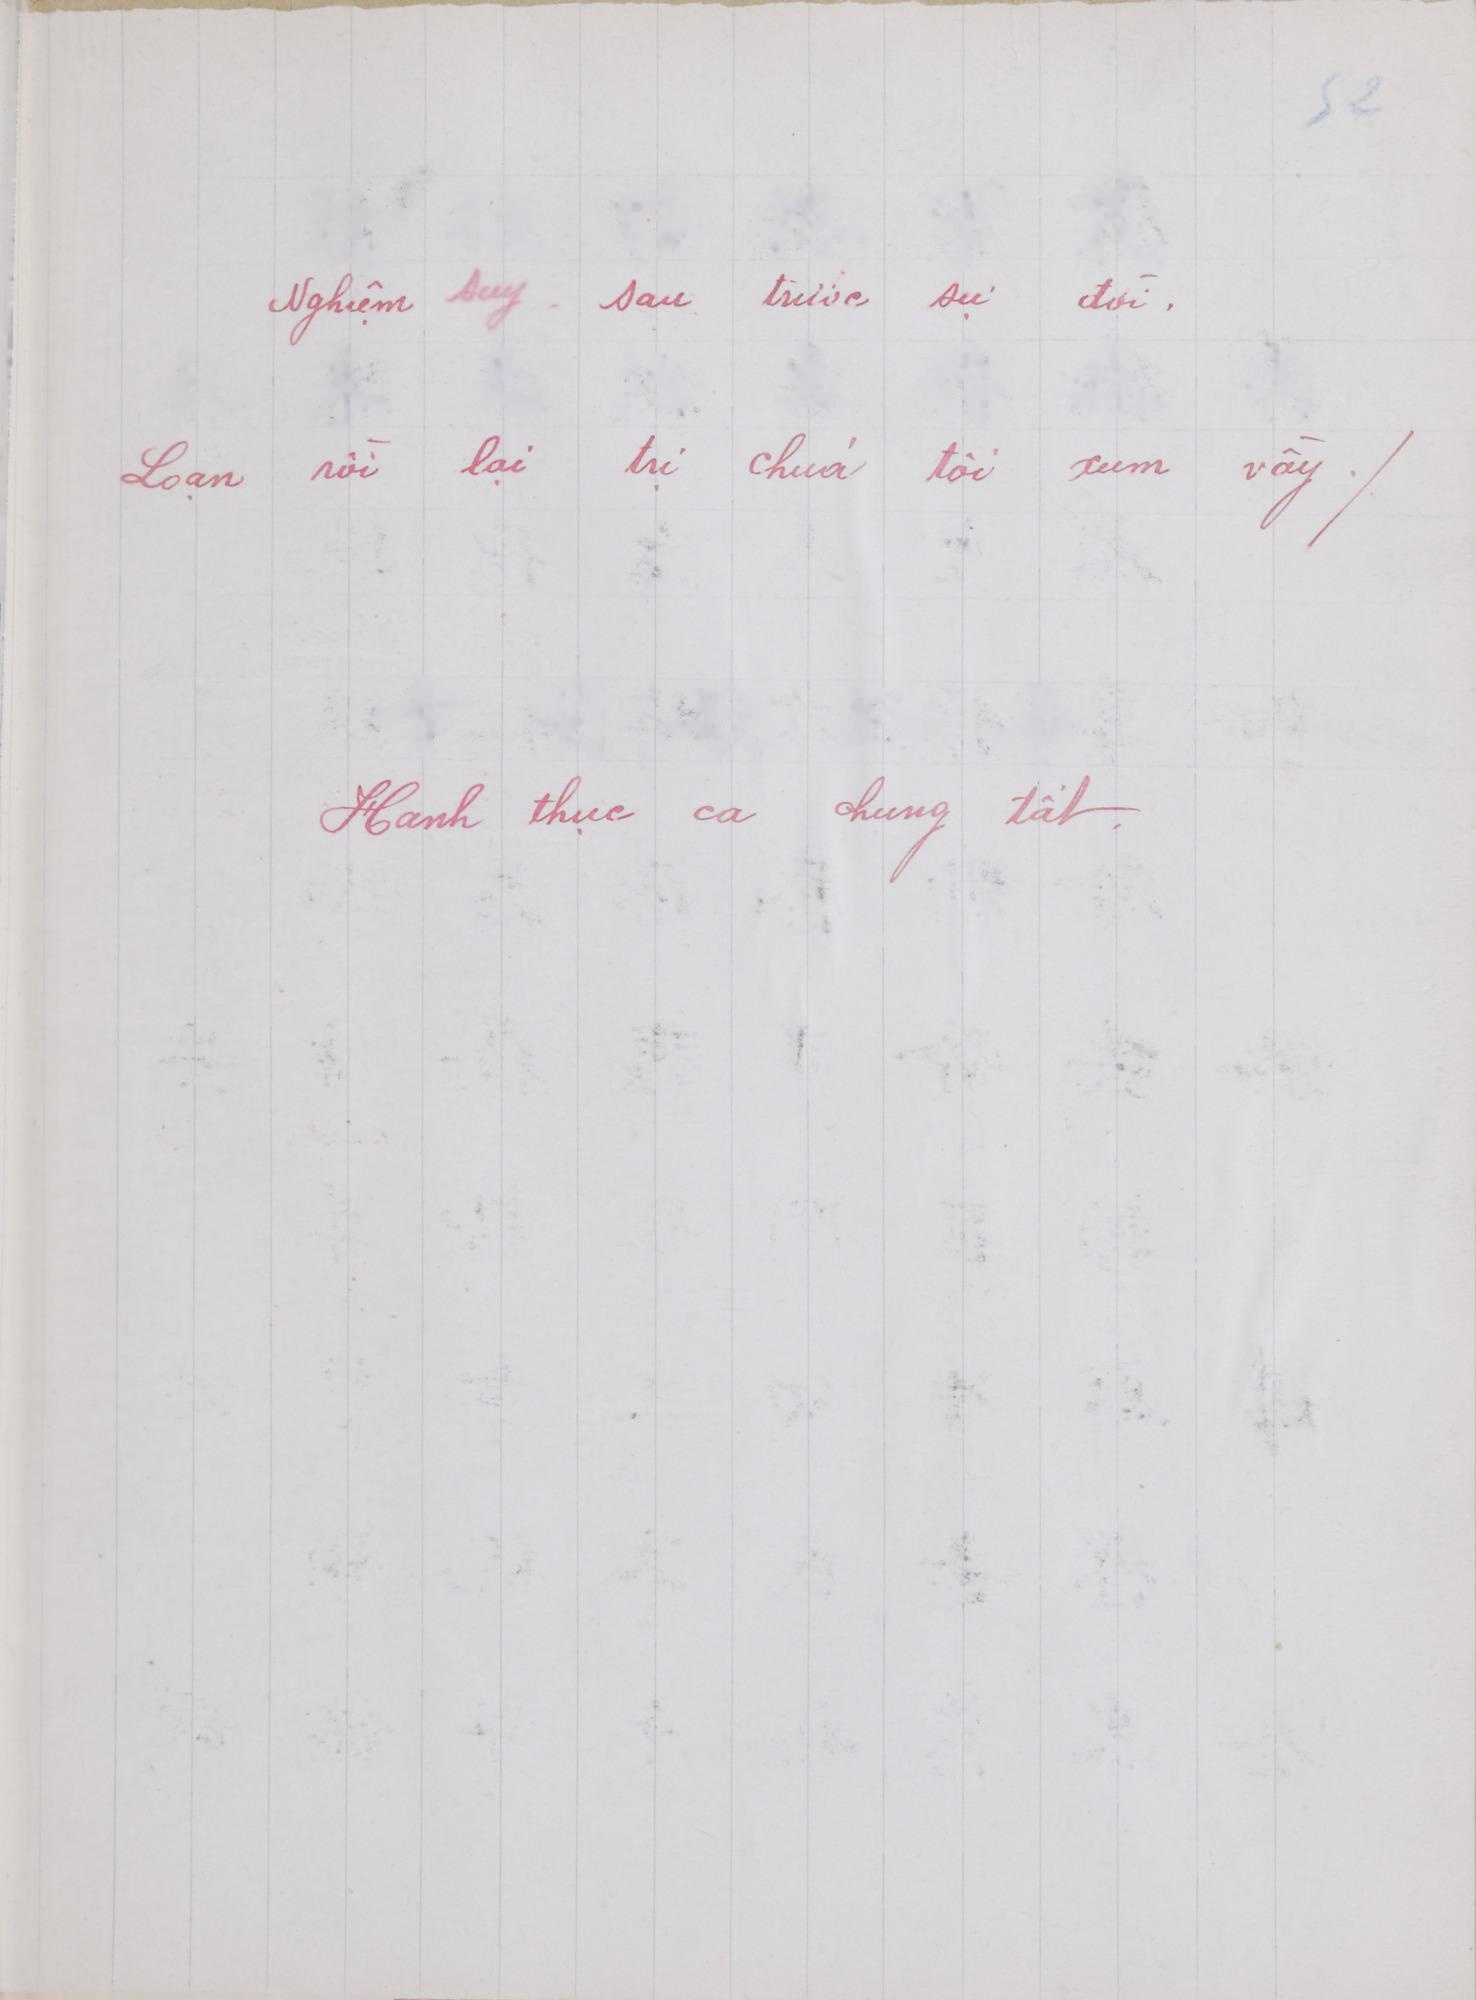 52
Nghiệm suy sau trước sự đời.
Loạn rồi lại trị chuá tôi xum vầy ./
Hanh thục ca chung tất.